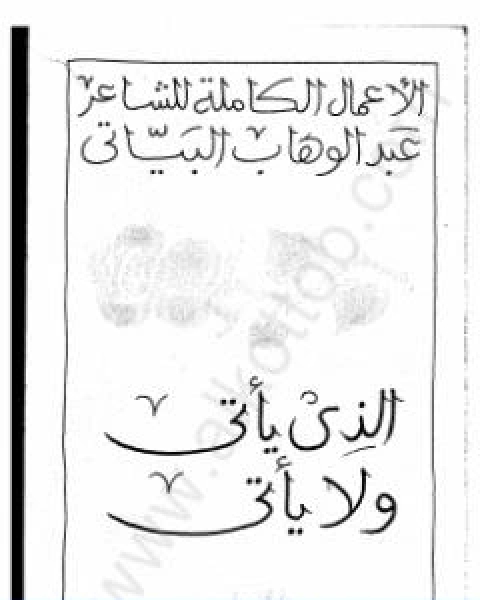 الأعمال الكاملة للشاعر
عَبد الوهاب البَيّاتى
الذِى يأتى
ولا يأتى
www.alkottob.com